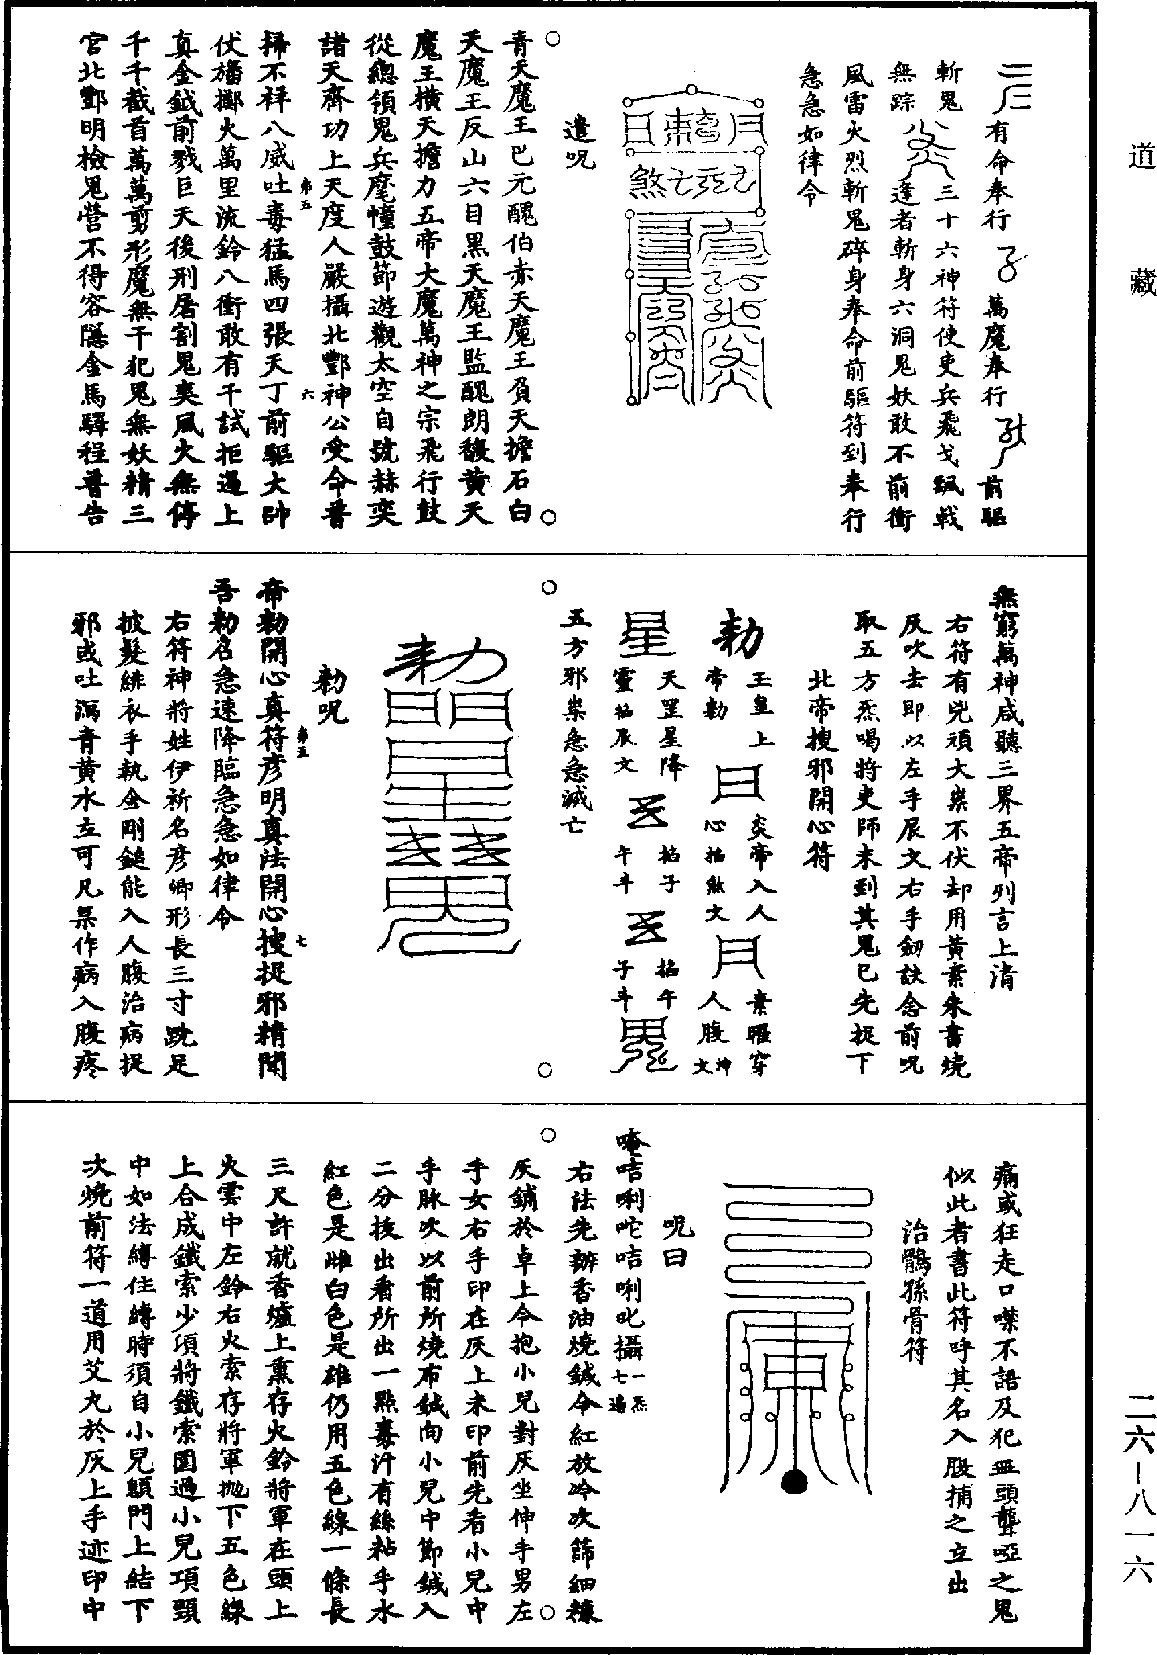 道藏
有命奉行 萬魔奉行 前驅
斬鬼
無踪 三十六神符使吏兵飛戈𩙪戟
逢者斬身六洞鬼妖敢不前衝
風雷火烈斬鬼碎身奉命前驅符到奉行
急急如律令
遣咒
青天魔王巴元醜伯赤天魔王負天擔石白
天魔王反山六目黑天魔王監醜朗馥黃天
魔王橫天擔力五帝大魔萬神之宗飛行鼓
從總領鬼兵麾幢鼓節遊觀太空自號赫奕
諸天齊功上天度人嚴攝北酆神公受命普
弟五 六
掃不祥八威吐毒猛馬四張天丁前驅大帥
仗旛擲火萬里流鈴八衝敢有干試拒遏上
真金鉞前戮巨天後刑屠割鬼爽風火無停
千千截首萬萬剪形魔無干犯鬼無妖精三
官北酆明檢鬼營不得容隱金馬驛程普告
無窮萬神咸聽三界五帝列言上清
右符有兇頑大祟不伏却用黃素朱書燒
灰吹去即以左手辰文右手劒訣念前咒
取五方炁喝將吏師未到其鬼已先捉下
北帝搜邪開心符
勑 玉皇上帝勑 日 炎帝入人心掐煞文 月 素曜穿人腹掐坤文
星 天罡星降靈掐辰文 掐子午斗 掐午子斗
五方邪祟急急滅亡
勑咒
帝勑開心真符彦明真法開心搜捉邪精聞
弟五 七
吾勑名急速降臨急急如律令
右符神將姓伊祈名彦卿形長三寸跣足
披髮緋衣手執金剛鎚能入人腹治病捉
邪或吐瀉青黃水立可凡祟作病入腹疼
痛或狂走口噤不語及犯血頭聾啞之鬼
似此者書此符呼其名入腹捕之立出
治鶻孫骨符
咒曰
唵咭唎咜咭唎叱攝一炁七遍
右法先辦香油燒鍼令紅放冷次篩細糠
灰鋪於卓上令抱小兒對灰坐伸手男左
手女右手印在灰上未印前先看小兒中
手脉次以前所燒布鍼向小兒中節鍼入
二分拔出看所出一點毒汁有絲粘手水
紅色是雌白色是雄仍用五色線一條長
三尺許就香爐上熏存火鈴將軍在頭上
火雲中左鈴右火索存將軍抛下五色線
上合成鐵索少項將鐵索圍過小兒項頸
中如法縛住縛時須自小兒顖門上結下
次燒前符一道用艾丸於灰上手迹印中
二六－八一六